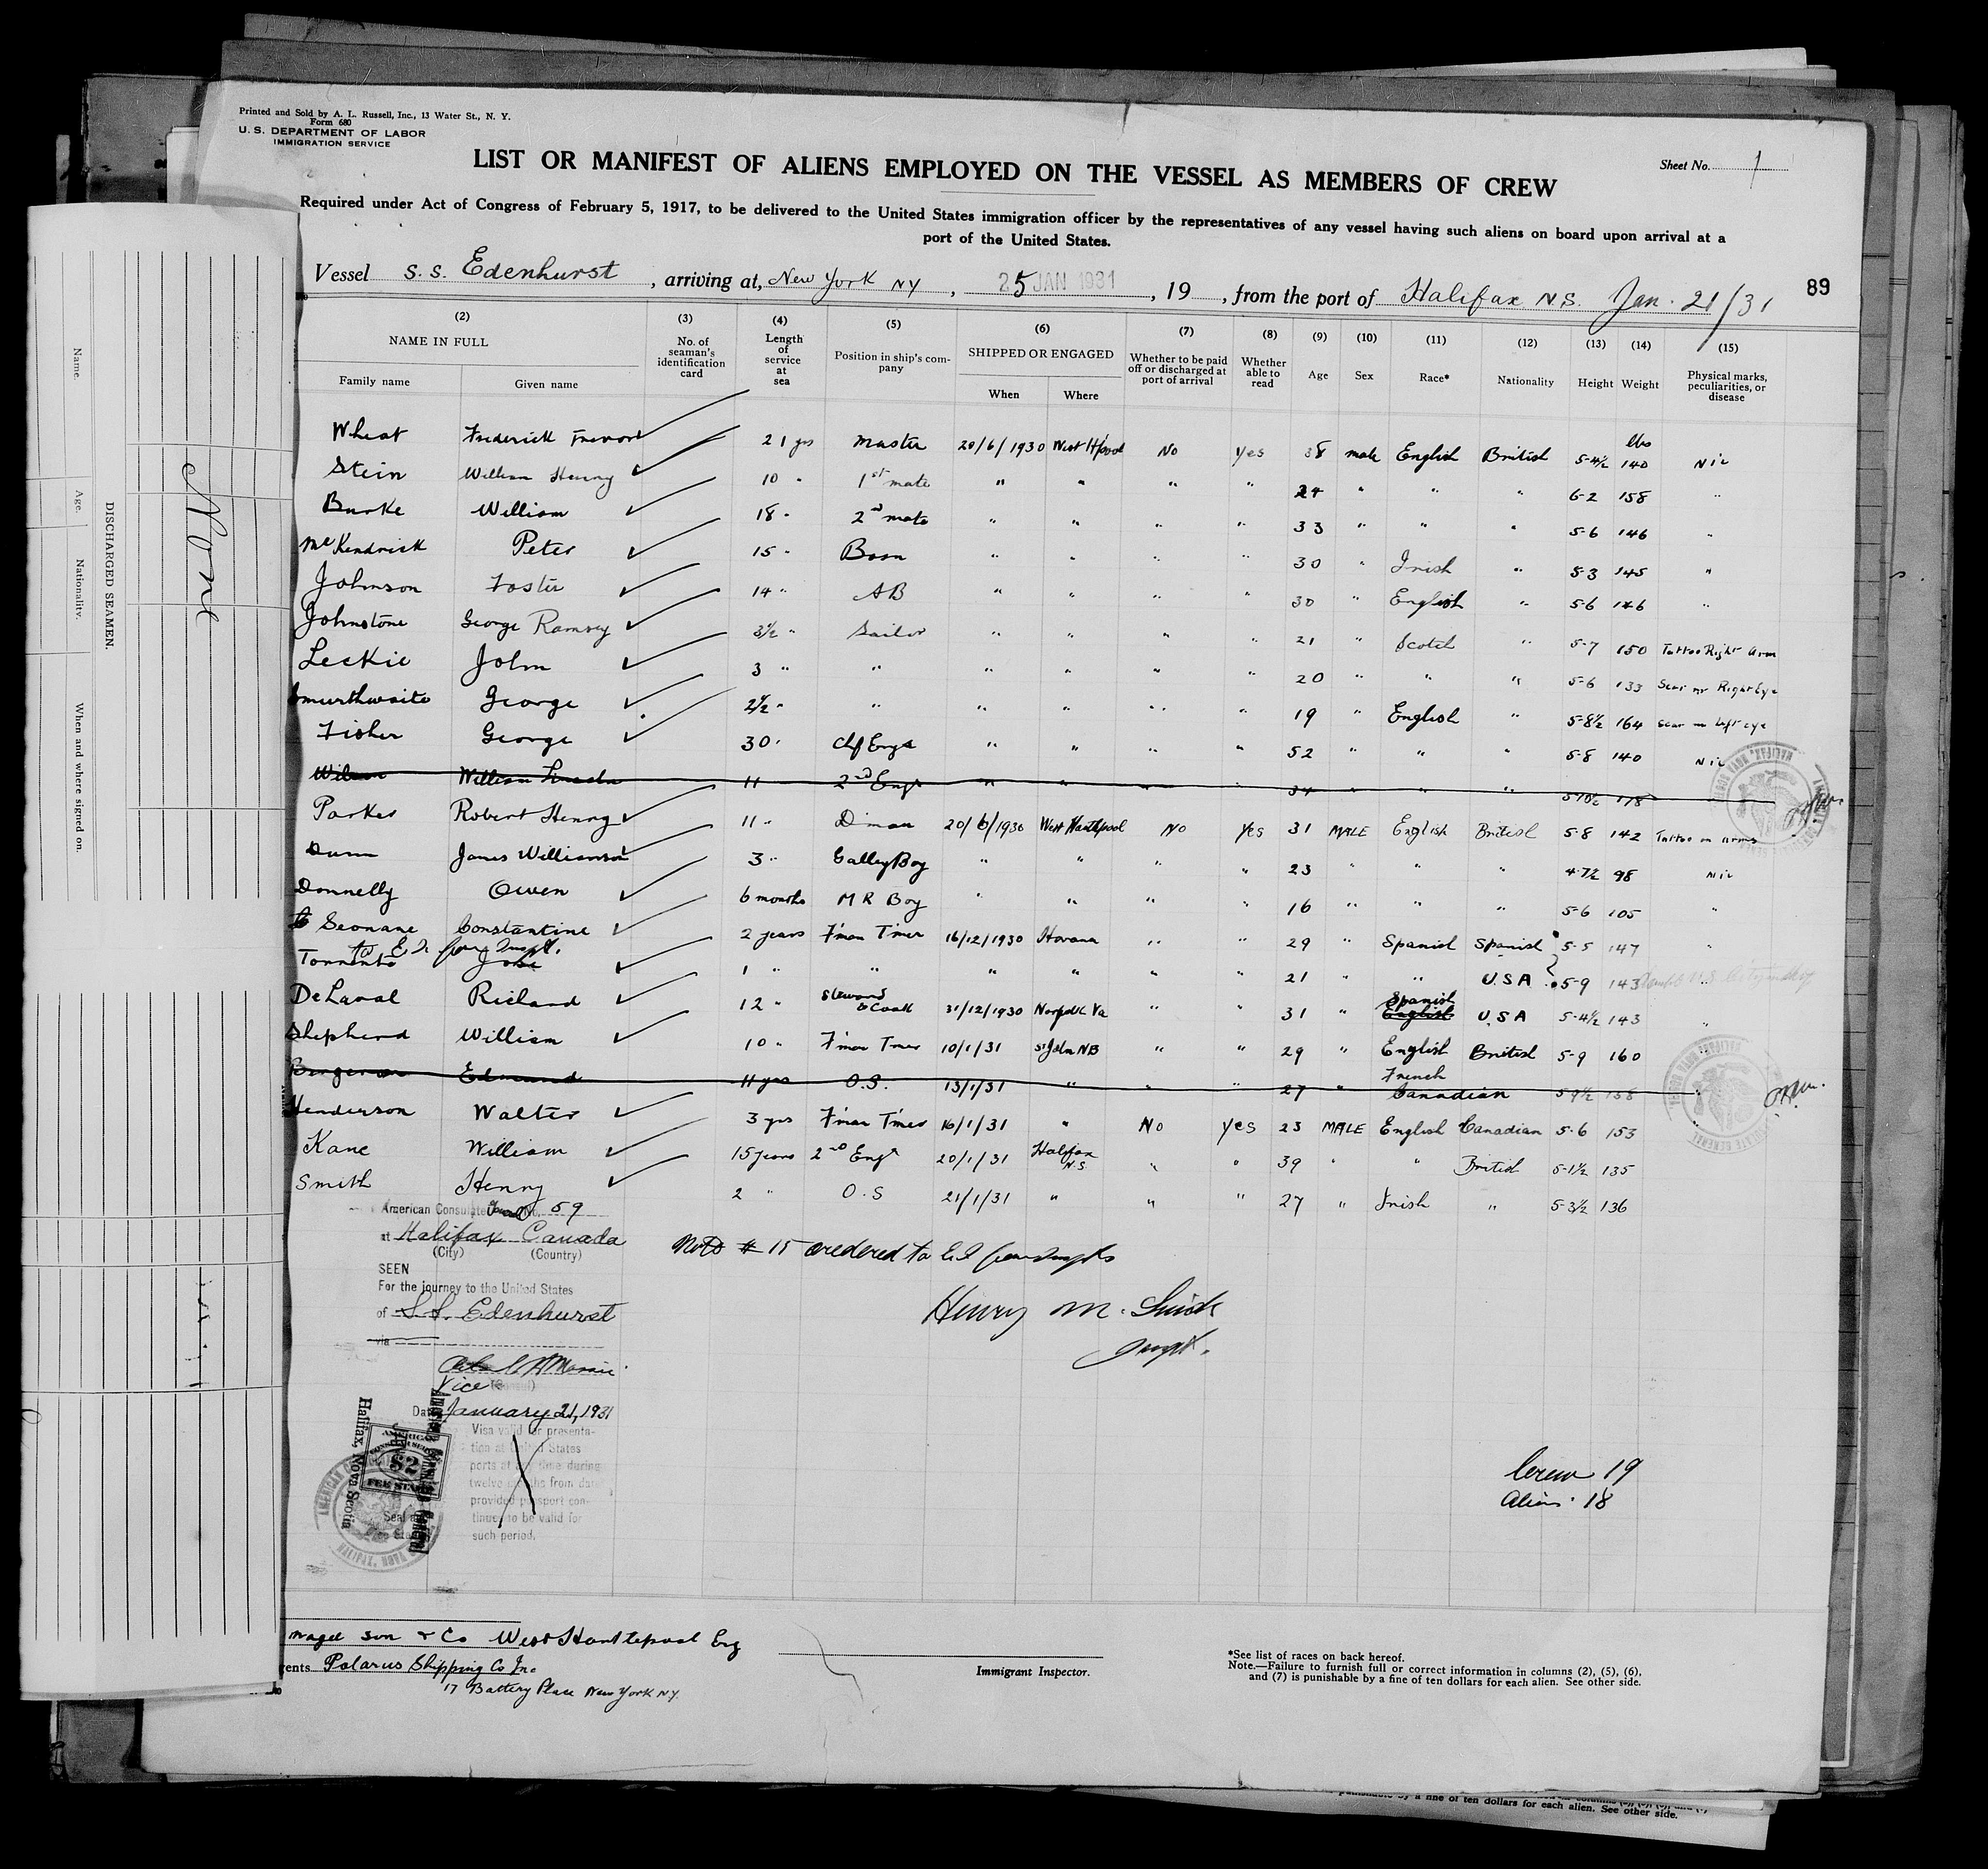 Printed and Sold by A. L. Russell, Inc., 13 Water St., N. Y.
Form 680
U. S. DEPARTMENT OF LABOR
IMMIGRATION SERVICE
LIST OR MANIFEST OF ALIENS EMPLOYED ON THE VESSEL AS MEMBERS OF CREW
Sheet No. 1
Required under Act of Congress of February 5, 1917, to be delivered to the United States immigration officer by the representatives of any vessel having such aliens on board upon arrival at a
port of the United States.
Vessel S. S. Edenhurst, arriving at, New York NY, 25 JAN 1931, 19, from the port of Halifax N.S. Jan. 21/31
89
(2) (3) (4) (5) (6) (7) (8) (9) (10) (11) (12) (13) (14) (15)
NAME IN FULL No. of seaman's identification card Length of service at sea Position in ship's company SHIPPED OR ENGAGED Whether to be paid off or discharged at port of arrival Whether able to read Age Sex Race* Nationality Height Weight Physical marks, peculiarities, or disease
Family name Given name When Where
Wheat Frederick Trevor 21 yrs Master 20/6/1930 West H'pool No Yes 38 male English British 5-4½ lbs 140 Nil
Stein William Henry 10 " 1st mate " " " " 24 " " " 6-2 158 "
Burke William 18 " 2nd mate " " " " 33 " " " 5-6 146 "
McKendrick Peter 15 " Bosn " " " " 30 " Irish " 5-3 145 "
Johnson Foster 14 " AB " " " " 30 " English " 5-6 146 "
Johnstone George Ramsey 3½ " Sailor " " " " 21 " Scotch " 5-7 150 Tattoo Right Arm
Leckie John 3 " " " " " " 20 " " " 5-6 133 Scar nr Right Eye
Smurthwaite George 2½ " " " " " " 19 " English " 5-8½ 164 Scar on left eye
Fisher George 30 " Chf Engr " " " " 52 " " " 5-8 140 Nil
Wilson William Lincoln 11 2nd Engr " " " " 34 " " " 5-10½ 178
Parker Robert Henry 11 " D'man 20/6/1930 West Hartlepool No Yes 31 MALE English British 5-8 142 Tattoo on arms
Dunn James Williamson 3 " Galley Boy " " " " 23 " " " 4-7½ 98 Nil
Donnelly Owen 6 months M R Boy " " " " 16 " " " 5-6 105 "
Seonane Constantine 2 years F'man T'mer 16/12/1930 Havana " " 29 " Spanish Spanish 5-5 147 "
to E.I. for Insp't.
Torrento Jose 1 " " " " " " 21 " " U.S.A. 5-9 143
DeLaval Richard 12 " Steward & Cook 31/12/1930 Norfolk Va " " 31 " Spanish English U.S.A 5-4½ 143 "
Shepherd William 10 " F'man T'mer 10/1/31 St John NB " " 29 " English British 5-9 160
Edmund 11 yrs O.S. 13/1/31 " " " 27 " French Canadian 5-9½ 158
Henderson Walter 3 yrs F'man T'mer 16/1/31 " No Yes 23 MALE English Canadian 5-6 153 "
Kane William 15 years 2nd Engr 20/1/31 Halifax N.S " " 39 " " British 5-1½ 135
Smith Henry 2 " O.S 21/1/31 " " " 27 " Irish " 5-3½ 136
American Consulate No. 59
at Halifax Canada
(City) (Country)
SEEN
For the journey to the United States
of S.S. Edenhurst
via
Vice (Consul)
Date January 21, 1931
Visa valid for presenta-
tion at United States
ports at any time during
twelve months from date
provided passport con-
tinues to be valid for
such period.
AMERICAN
CONSULAR SERVICE
$2
FEE STAMP
Halifax, Nova Scotia
Note # 15 ordered to E.I.
Henry M.
Inspt.
Crew 19
Aliens 18
Son & Co West Hartlepool Eng
Polarus Shipping Co Inc
17 Battery Place New York NY.
Immigrant Inspector.
*See list of races on back hereof.
Note.—Failure to furnish full or correct information in columns (2), (5), (6),
and (7) is punishable by a fine of ten dollars for each alien. See other side.
DISCHARGED SEAMEN.
Name. Age. Nationality. When and where signed on.
None
punishable by a fine of ten dollars for each alien. See other side.